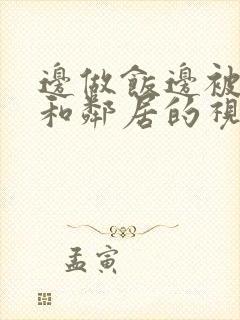 邊做飯邊被
和鄰居的視
孟寅